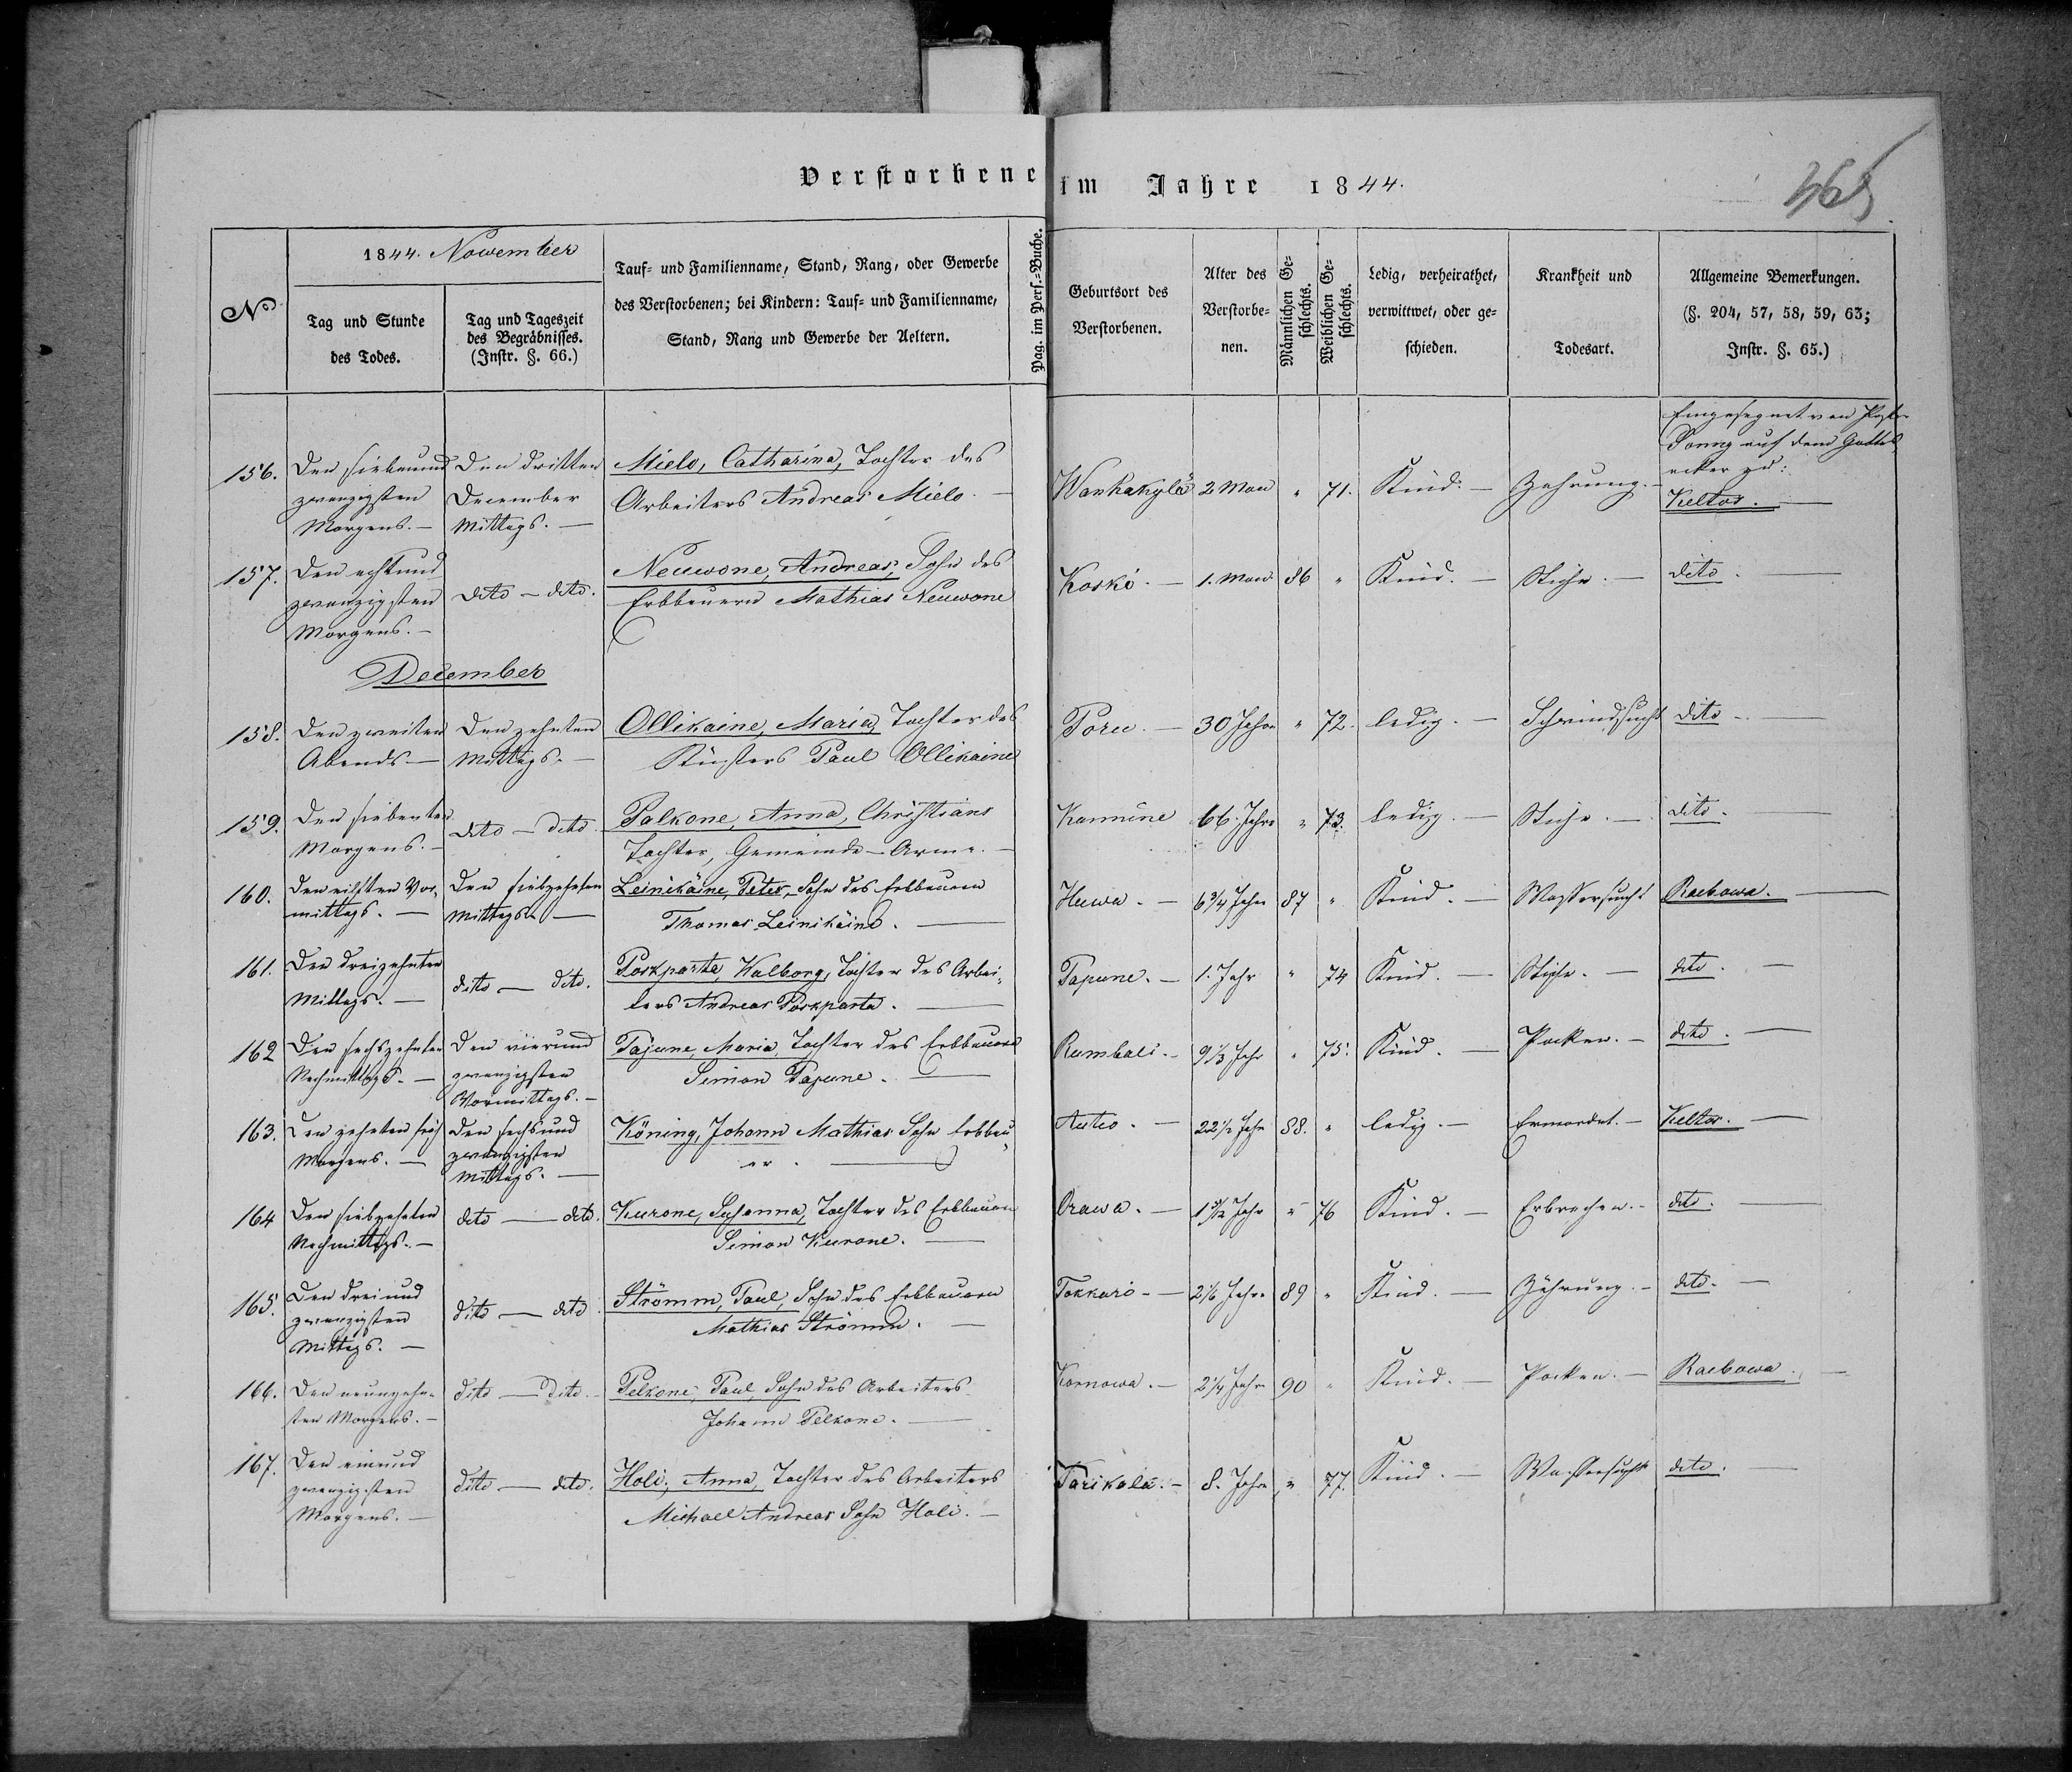 Verstorbene im Jahre 1844.
365
N°
1844. November
Tag und Stunde
des Todes.
Tag und Tageszeit
des Begräbnisses.
(Instr. §. 66.)
Tauf- und Familienname, Stand, Rang, oder Gewerbe
des Verstorbenen; bei Kindern: Tauf- und Familienname,
Stand, Rang und Gewerbe der Aeltern.
Pag. im Pers.-Buche.
Geburtsort des
Verstorbenen.
Alter des
Verstorbe-
nen.
Männlichen Ge-
schlechts.
Weiblichen Ge-
schlechts.
Ledig, verheirathet,
verwittwet, oder ge-
schieden.
Krankheit und
Todesart.
Allgemeine Bemerkungen.
(§. 204, 57, 58, 59, 63;
Instr. §. 65.)
156.
Den siebenund
zwanzigsten
Morgens. —
Den dritten
December
Mittags. —
Mielo, Catharina, Tochter des
Arbeiters Andreas Mielo. —
Wanhakylä
2 Mon
" 71.
Kind. —
Zehrung. —
Eingesegnet von Pastor
auf dem Gottes
acker zu:
Keltos. —
157.
Den achtund
zwanzigsten
Morgens. —
dito — dito.
Neuwone, Andreas, Sohn des
Erbbauern Mathias Neuwone
Koskò. —
1. Mon
86 "
Kind. —
Stiche. —
dito. —
December
158.
Den zweiten
Abends —
Den zehnten
Mittags. —
Ollikaine, Maria, Tochter des
Küsters Paul Ollikaine
Poru. —
30 Jahre
" 72.
ledig. —
Schwindsucht
dito —
159.
Den siebenten
Morgens. —
dito — dito.
Palkone, Anna, Christians
Tochter, Gemeinde-Arme. —
Kannùne
66. Jahre
" 73.
ledig. —
Stiche. —
dito. —
160.
Den eilften Vor-
mittags. —
Den siebzehnten
Mittags. —
Leinikäine, Peter, Sohn des Erbbauern
Thomas Leinikäine. —
Huwa. —
6 3/4 Jahre
87 "
Kind. —
Wassersucht
Raebowa. —
161.
Den dreizehnten
Mittags. —
dito — dito.
Poskparta, Walborg, Tochter des Arbei-
ters Andreas Poskparta. —
Papune. —
1. Jahr
" 74
Kind. —
Stiche. —
dito. —
162
Den sechszehnten
Nachmittags. —
Den vierund
zwanzigsten
Vormittags. —
Pajune, Maria, Tochter des Erbbauern
Simon Pajune. —
Rumbali. —
9 1/3 Jahr
" 75.
Kind. —
Pocken. —
dito. —
163.
Den zehnten früh
Morgens. —
Den sechsund
zwanzigsten
Mittags. —
Köning, Johann Mathias Sohn Erbbau-
er. —
Autio. —
22 1/2 Jahr
88. "
ledig. —
Ermordet. —
Keltos. —
164
Den siebzehnten
Nachmittags. —
dito — dito.
Kurone, Susanna, Tochter des Erbbauern
Simon Kurone. —
Orawa. —
" 76
Kind. —
Erbrechen. —
dito. —
165.
Den dreiund
zwanzigsten
Mittags. —
dito — dito
Strömm, Paul, Sohn des Erbbauern
Mathias Strömm. —
Tokkari —
2 1/6 Jahre
89 "
Kind. —
Zehrung. —
dito. —
166.
Den neunzehn-
ten Morgens. —
dito — dito. —
Pelkone, Paul, Sohn des Arbeiters
Johann Pelkone. —
Kornowa. —
2 1/4 Jahre
90 "
Kind. —
Pocken. —
Raebowa. —
167.
Den einund
zwanzigsten
Morgens. —
dito — dito.
Holi, Anna, Tochter des Arbeiters
Michael Andreas Sohn Holi. —
Tarikala. —
8. Jahre
" 77.
Kind. —
Wassersucht
dito. —